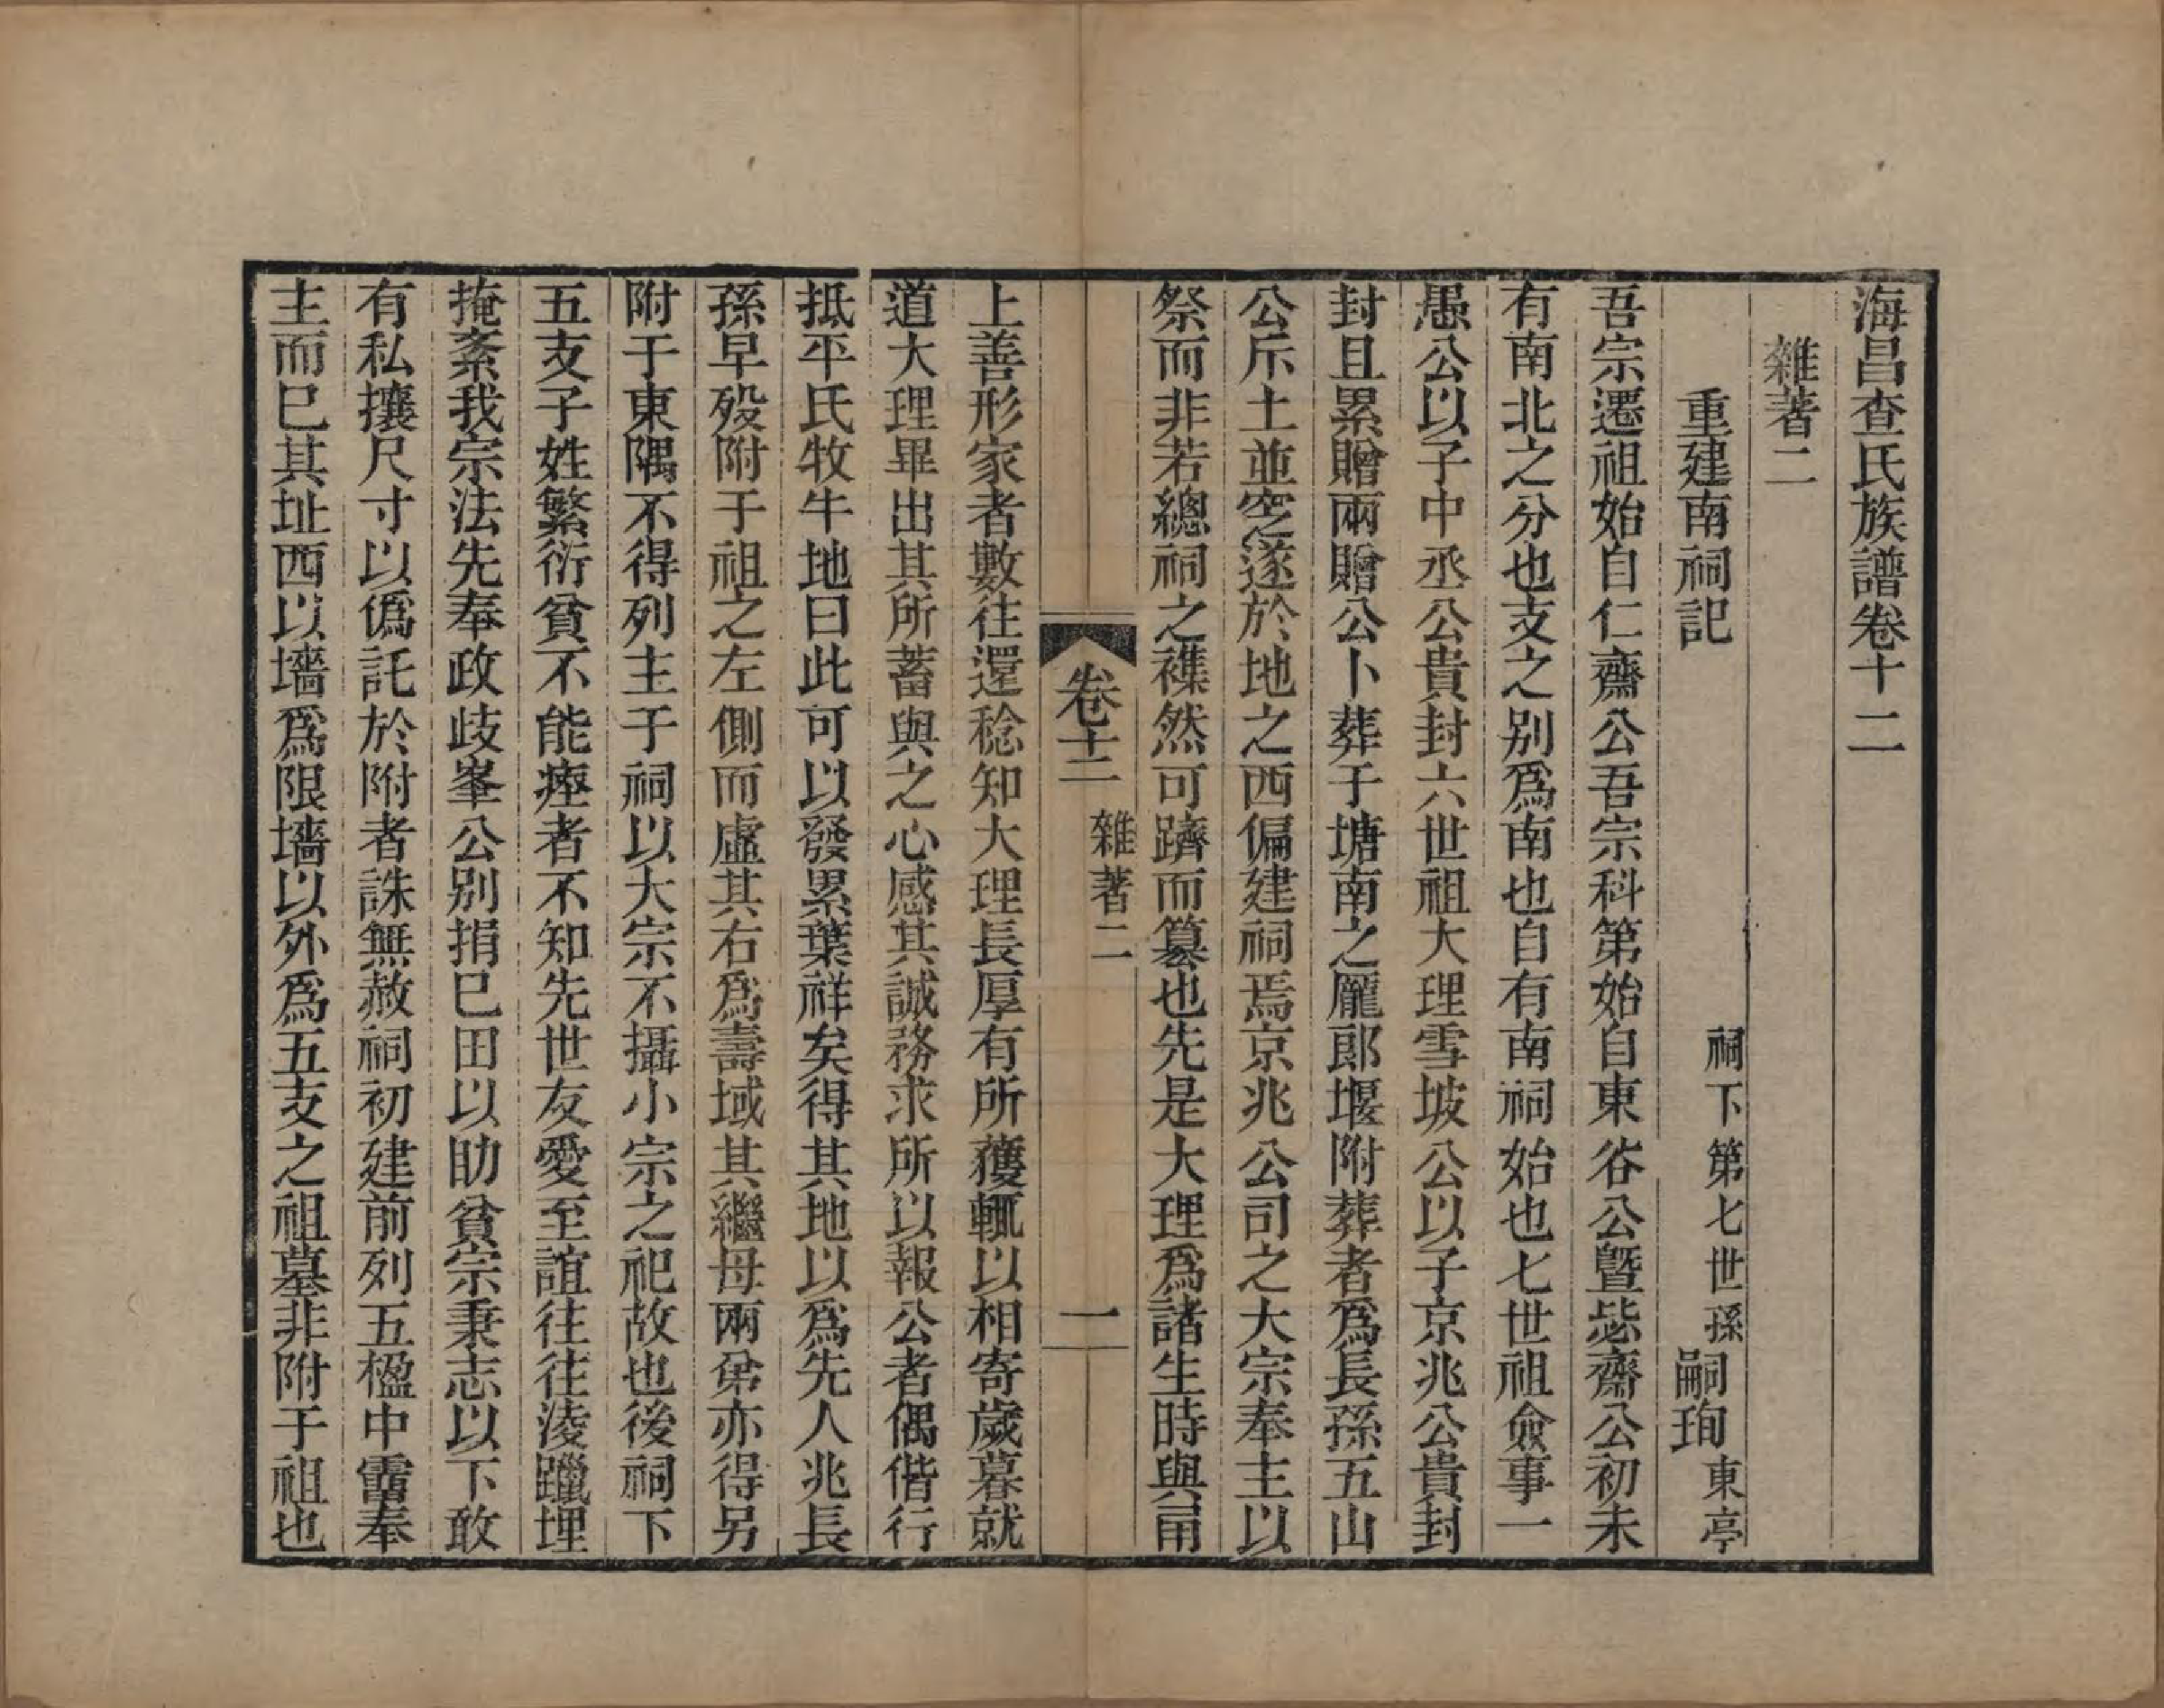 海昌查氏族譜卷十二
雜著二
重建南祠記
祠下第七世孫嗣珣東亭
吾宗遷祖始自仁齋公吾宗科第始自東谷公曁毖齋公初未
有南北之分也支之别爲南也自有南祠始也七世祖僉事一
愚公以子中丞公貴封六世祖大理雪坡公以子京兆公貴封
封且累贈兩贈公卜葬于塘南之龐郎堰附葬者爲長孫五山
公斥土並窆遂於地之西偏建祠焉京兆公司之大宗奉主以
祭而非若總祠之襍然可躋而簒也先是大理爲諸生時與甬
卷十二 雜著二 一
上善形家者數往還稔知大理長厚有所獲輒以相寄歲暮就
道大理畢出其所蓄與之心感其誠務求所以報公者偶偕行
抵平氏牧牛地曰此可以發累葉祥矣得其地以爲先人兆長
孫早殁附于祖之左側而虛其右爲壽域其繼母兩弟亦得另
附于東隅不得列主于祠以大宗不攝小宗之祀故也後祠下
五支子姓繁衍貧不能瘞者不知先世友愛至誼往往淩躐埋
掩紊我宗法先奉政歧峯公别捐已田以助貧宗秉志以下敢
有私攘尺寸以僞託於附者誅無赦祠初建前列五楹中霤奉
主而已其址西以墻爲限墻以外爲五支之祖墓非附于祖也